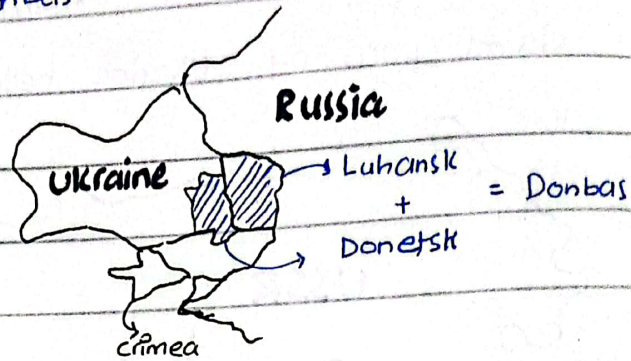 Russia
Ukraine
Luhansk
+
= Donbas
Donetsk
Crimea